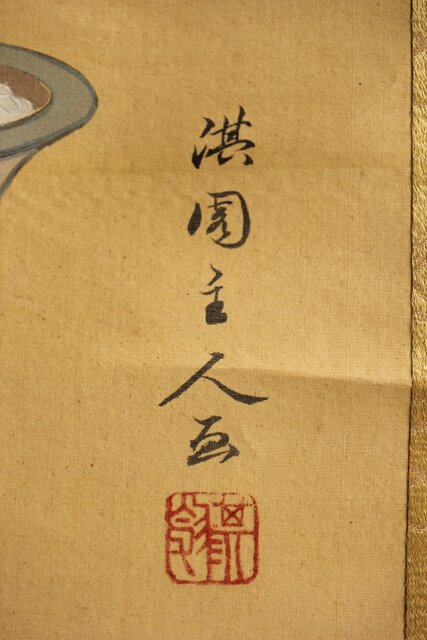 淇園主人画